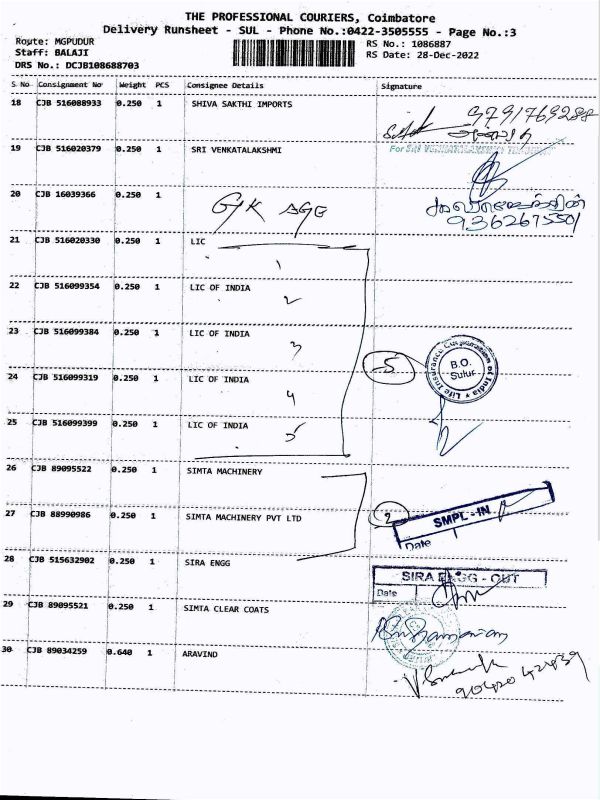 THE PROFESSIONAL COURIERS, Coimbatore
Delivery Runsheet - SUL - Phone No.:0422-3505555 - Page No.:3
Route: MGPUDUR
Staff: BALAJI
DRS No.: DCJB108688703
RS No.: 1086887
RS Date: 28-Dec-2022
S No Consignment No Weight PCS Consignee Details Signature
18 CJB 516088933 0.250 1 SHIVA SAKTHI IMPORTS 9791769288
19 CJB 516020379 0.250 1 SRI VENKATALAKSHMI
For SRI
20 CJB 16039366 0.250 1
9362675501
21 CJB 516020330 0.250 1 LIC
1
22 CJB 516099354 0.250 1 LIC OF INDIA
2
23 CJB 516099384 0.250 1 LIC OF INDIA
3
5
Life Insurance Corporation of India
B.O.
Sulur
24 CJB 516099319 0.250 1 LIC OF INDIA
4
25 CJB 516099399 0.250 1 LIC OF INDIA
5
26 CJB 89095522 0.250 1 SIMTA MACHINERY
27 CJB 88990986 0.250 1 SIMTA MACHINERY PVT LTD
2
SMPL - IN
Date
28 CJB 515632902 0.250 1 SIRA ENGG
SIRA ENGG - OUT
Date
29 CJB 89095521 0.250 1 SIMTA CLEAR COATS
30 CJB 89034259 0.640 1 ARAVIND